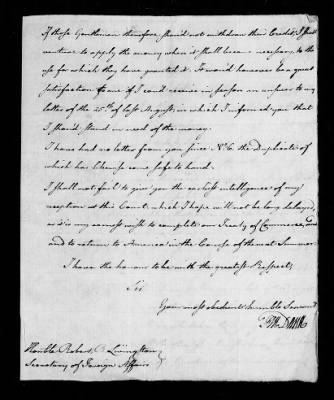 If those Gentlemen therefore shou'd not withdraw their Credit, I shall
continue to apply the money when it shall become necessary, to the
use for which they have granted it. It wou'd however be a great
satisfaction to me if I could receive in season an answer to my
letter of the 25th of last August, in which I informed you that
I shou'd stand in need of the money.
I have had no letter from you since No. 6 the Duplicate of
which has likewise come safe to hand.
I shall not fail to give you the earliest intelligence of my
reception at this Court, which I hope will not be long delayed,
as it is my earnest wish to complete our Treaty of Commerce, and
and to return to America in the Course of the next Summer.
I have the honour to be with the greatest Respect,
Sir
Your most obedient humble Servant
FRA Dana
Honble Robert R. Livingston
Secretary of Foreign Affairs.